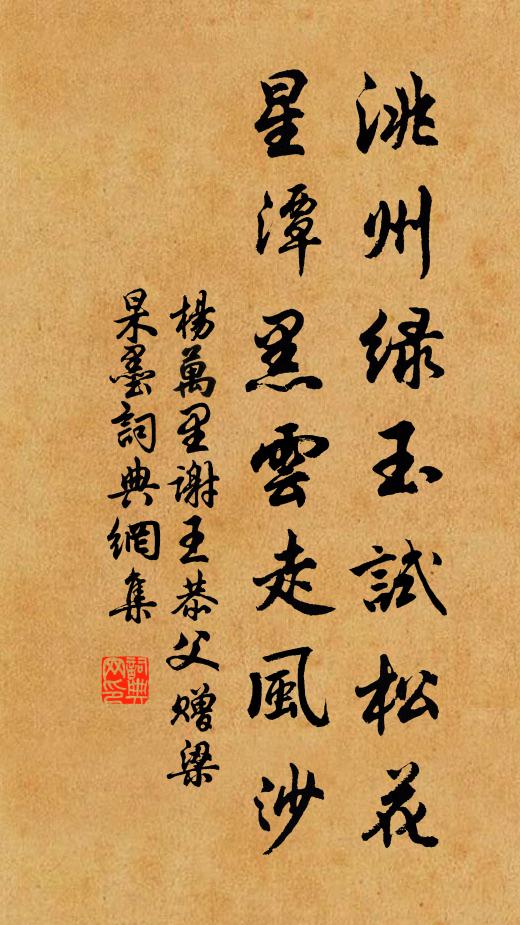 洮州綠玉試松花
星潭黑雲走風沙
楊萬里謝王恭父贈梁
杲墨詞典網集
詞典网印